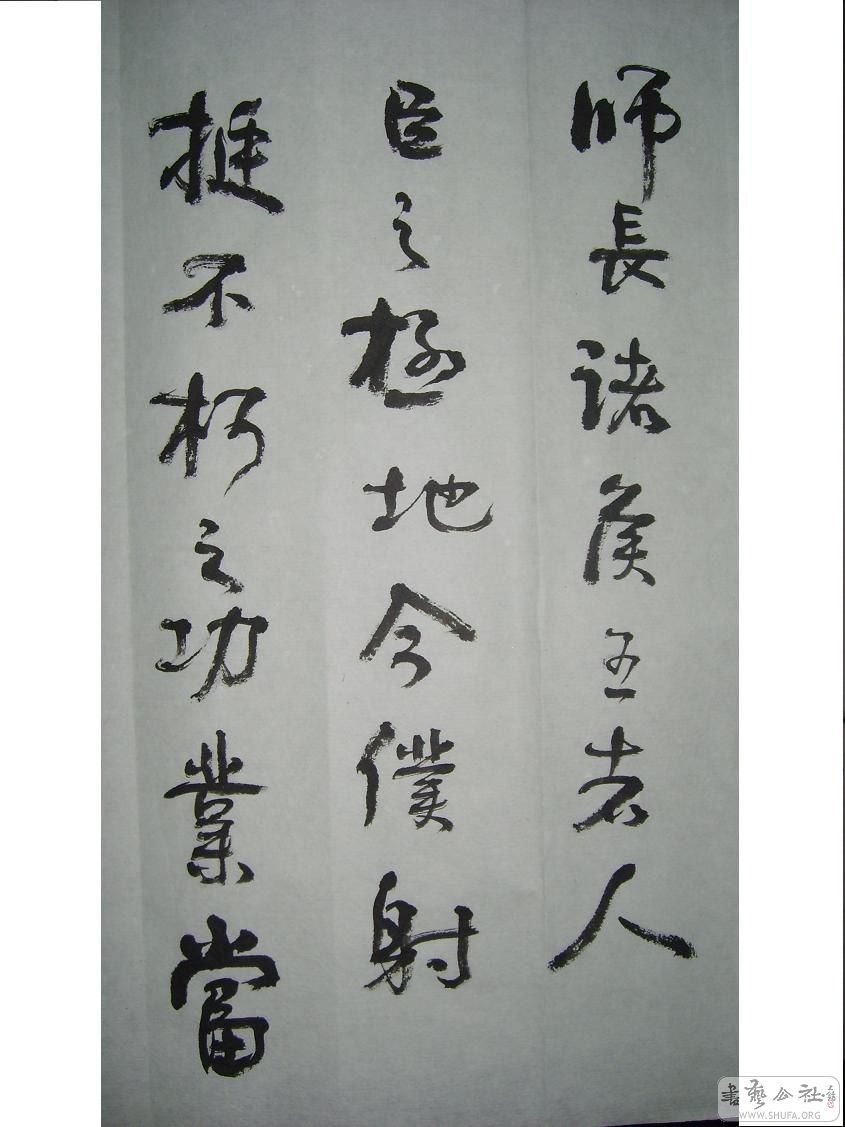 师長诸侯王者人
臣之極地今僕射
挺不朽之功業當
書藝公社
WWW.SHUFA.ORG